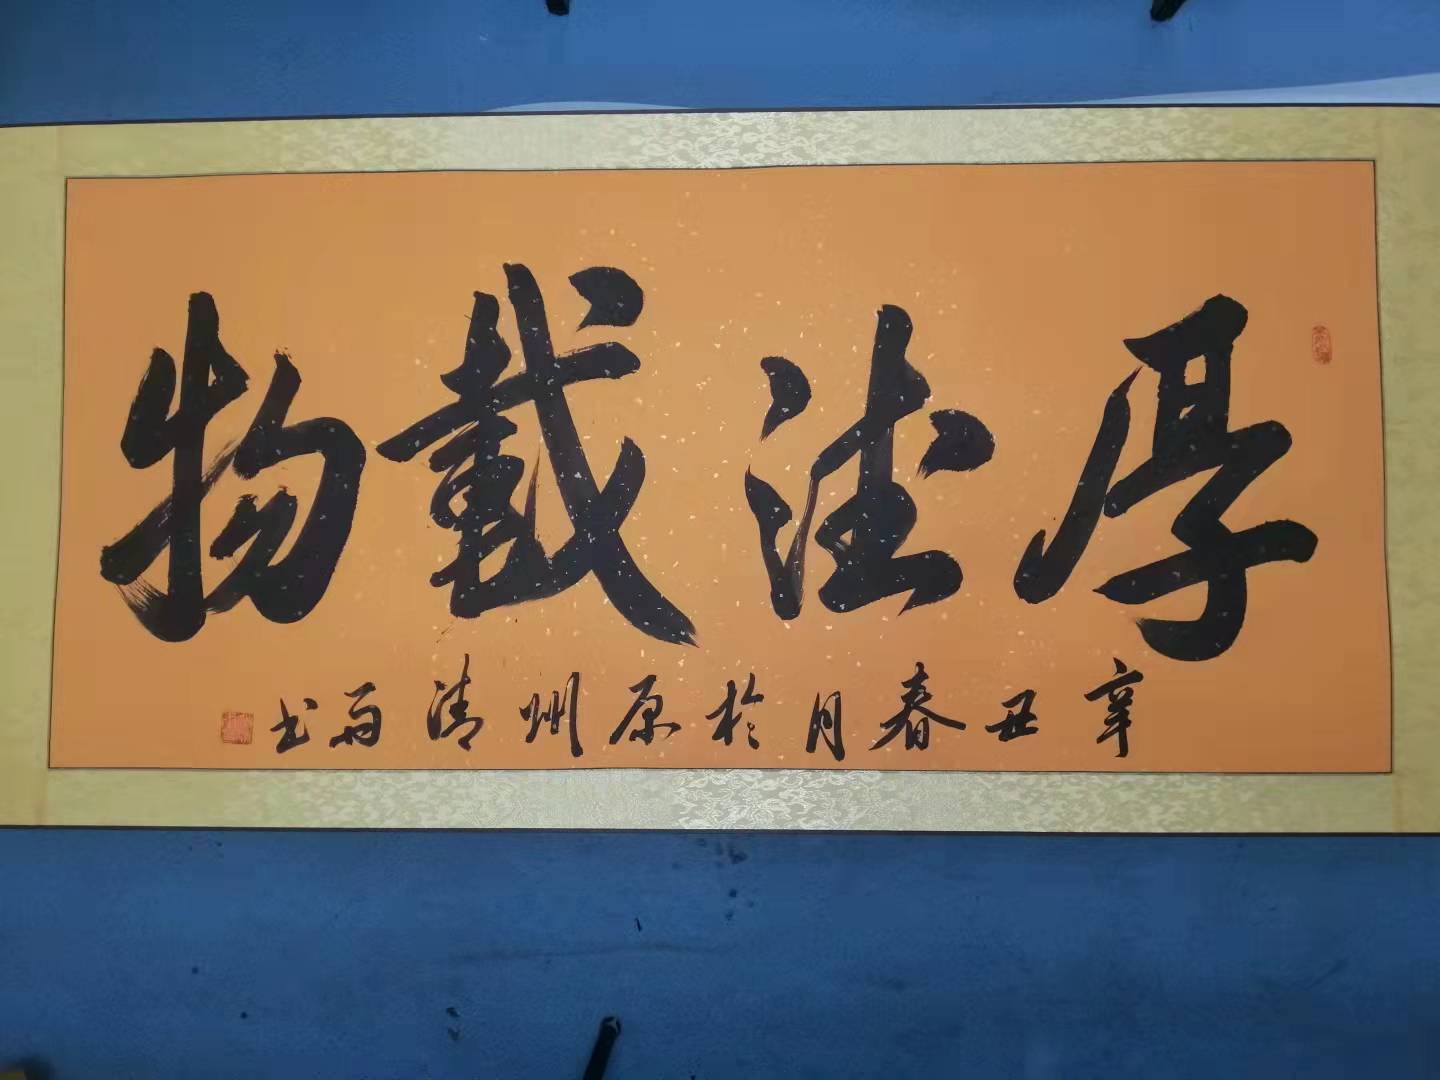 厚德載物
辛丑春月於原州清雨书